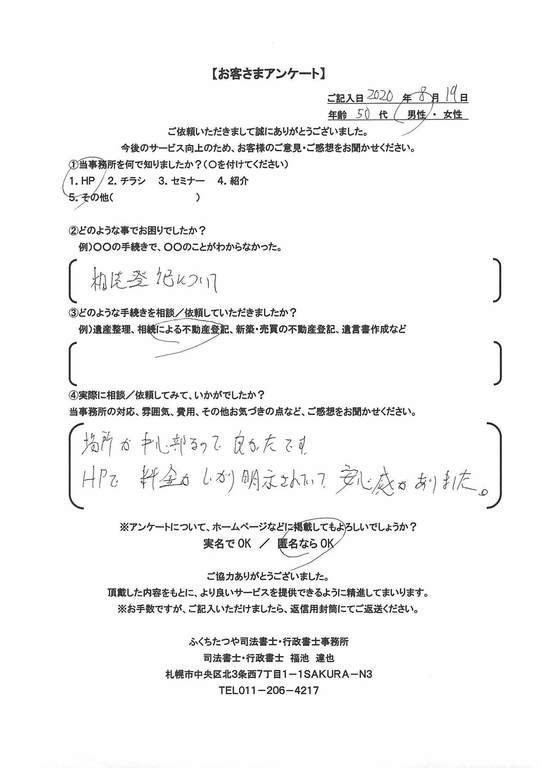 【お客さまアンケート】
ご記入日 2020 年 8 月 19 日
年齢 50 代 男性・女性
ご依頼いただきまして誠にありがとうございました。
今後のサービス向上のため、お客様のご意見・ご感想をお聞かせください。
①当事務所を何で知りましたか?(○を付けてください)
1. HP 2. チラシ 3. セミナー 4. 紹介
5. その他( )
②どのような事でお困りでしたか?
例)○○の手続きで、○○のことがわからなかった。
相続登記について
③どのような手続きを相談/依頼していただきましたか?
例)遺産整理、相続による不動産登記、新築・売買の不動産登記、遺言書作成など
④実際に相談/依頼してみて、いかがでしたか?
当事務所の対応、雰囲気、費用、その他お気づきの点など、ご感想をお聞かせください。
場所が中心部なので良かったです
HPで料金がしっかり明示されていて安心感がありました。
※アンケートについて、ホームページなどに掲載してもよろしいでしょうか?
実名でOK / 匿名ならOK
ご協力ありがとうございました。
頂戴した内容をもとに、より良いサービスを提供できるように精進してまいります。
※お手数ですが、ご記入いただけましたら、返信用封筒にてご返送ください。
ふくちたつや司法書士・行政書士事務所
司法書士・行政書士 福池 達也
札幌市中央区北3条西7丁目1-1SAKURA-N3
TEL011-206-4217